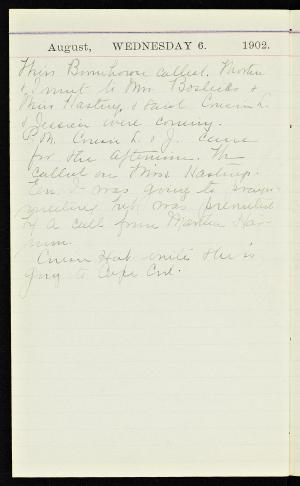 August, WEDNESDAY 6. 1902.
Miss called. Martha
& I went to Mrs. &
Miss Hastings & said Cousin L.
& Jessie were coming.
P.M. Cousin L. & J. came
for the afternoon. We
called on Miss Hastings.
Eve. I was going to prayer
meeting but was prevented
by a call from Martha

Cousin writes she is
going to Cape Cod.